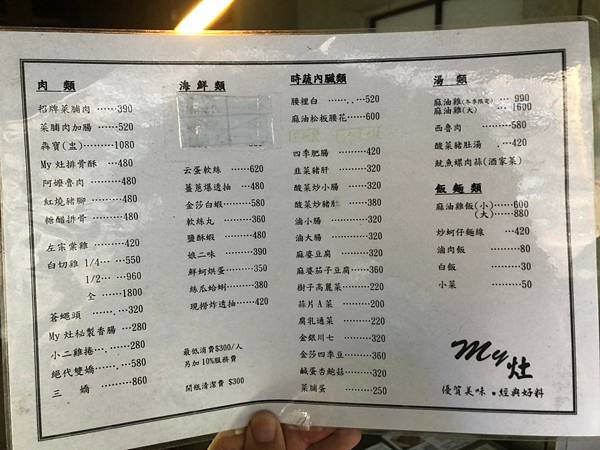 肉 類
招牌菜脯肉……390
菜脯肉加腸……520
犇寶(盅)………1080
My灶排骨酥 …480
阿嬤魯肉 ………480
紅燒豬腳 ………480
糖醋排骨 ………480
左宗棠雞 ………420
白切雞 1/4… …550
1/2… …960
全 …1800
蒼蠅頭 ………320
My灶秘製香腸 …280
小二雞捲………280
絕代雙嬌………580
三 嬌 ………860
海鮮類
云蛋軟絲 ……620
薑蔥爆透抽 …480
金莎白蝦………580
軟絲丸 ………360
鹽酥蝦 ………480
娘二味 ………390
鮮蚵烘蛋………350
絲瓜蛤蜊………380
現撈炸透抽……420
最低消費$300/人
另加10%服務費
開瓶清潔費 $300
時蔬內臟類
腰裡白 ………520
麻油松板腰花……600
四季肥腸 ………420
韭菜豬肝 ………320
酸菜炒小腸 ……320
酸菜炒豬肚 ……380
滷小腸 ………320
滷大腸 ………320
麻婆豆腐 ………320
麻婆茄子豆腐……360
樹子高麗菜………220
蒜片A菜 ………200
腐乳通菜 ………220
金銀川七 ………320
金莎四季豆………360
鹹蛋杏鮑菇………320
菜脯蛋 ………250
湯 類
麻油雞(冬季限定) …990
麻油雞(大) …1600
西魯肉 ………580
酸菜豬肚湯 ..…420
魷魚螺肉蒜(酒家菜)
飯麵類
麻油雞飯(小)……600
(大)……880
炒蚵仔麵線 ……420
滷肉飯 ………80
白飯 ………30
小菜 ………50
My灶
優質美味．經典好料